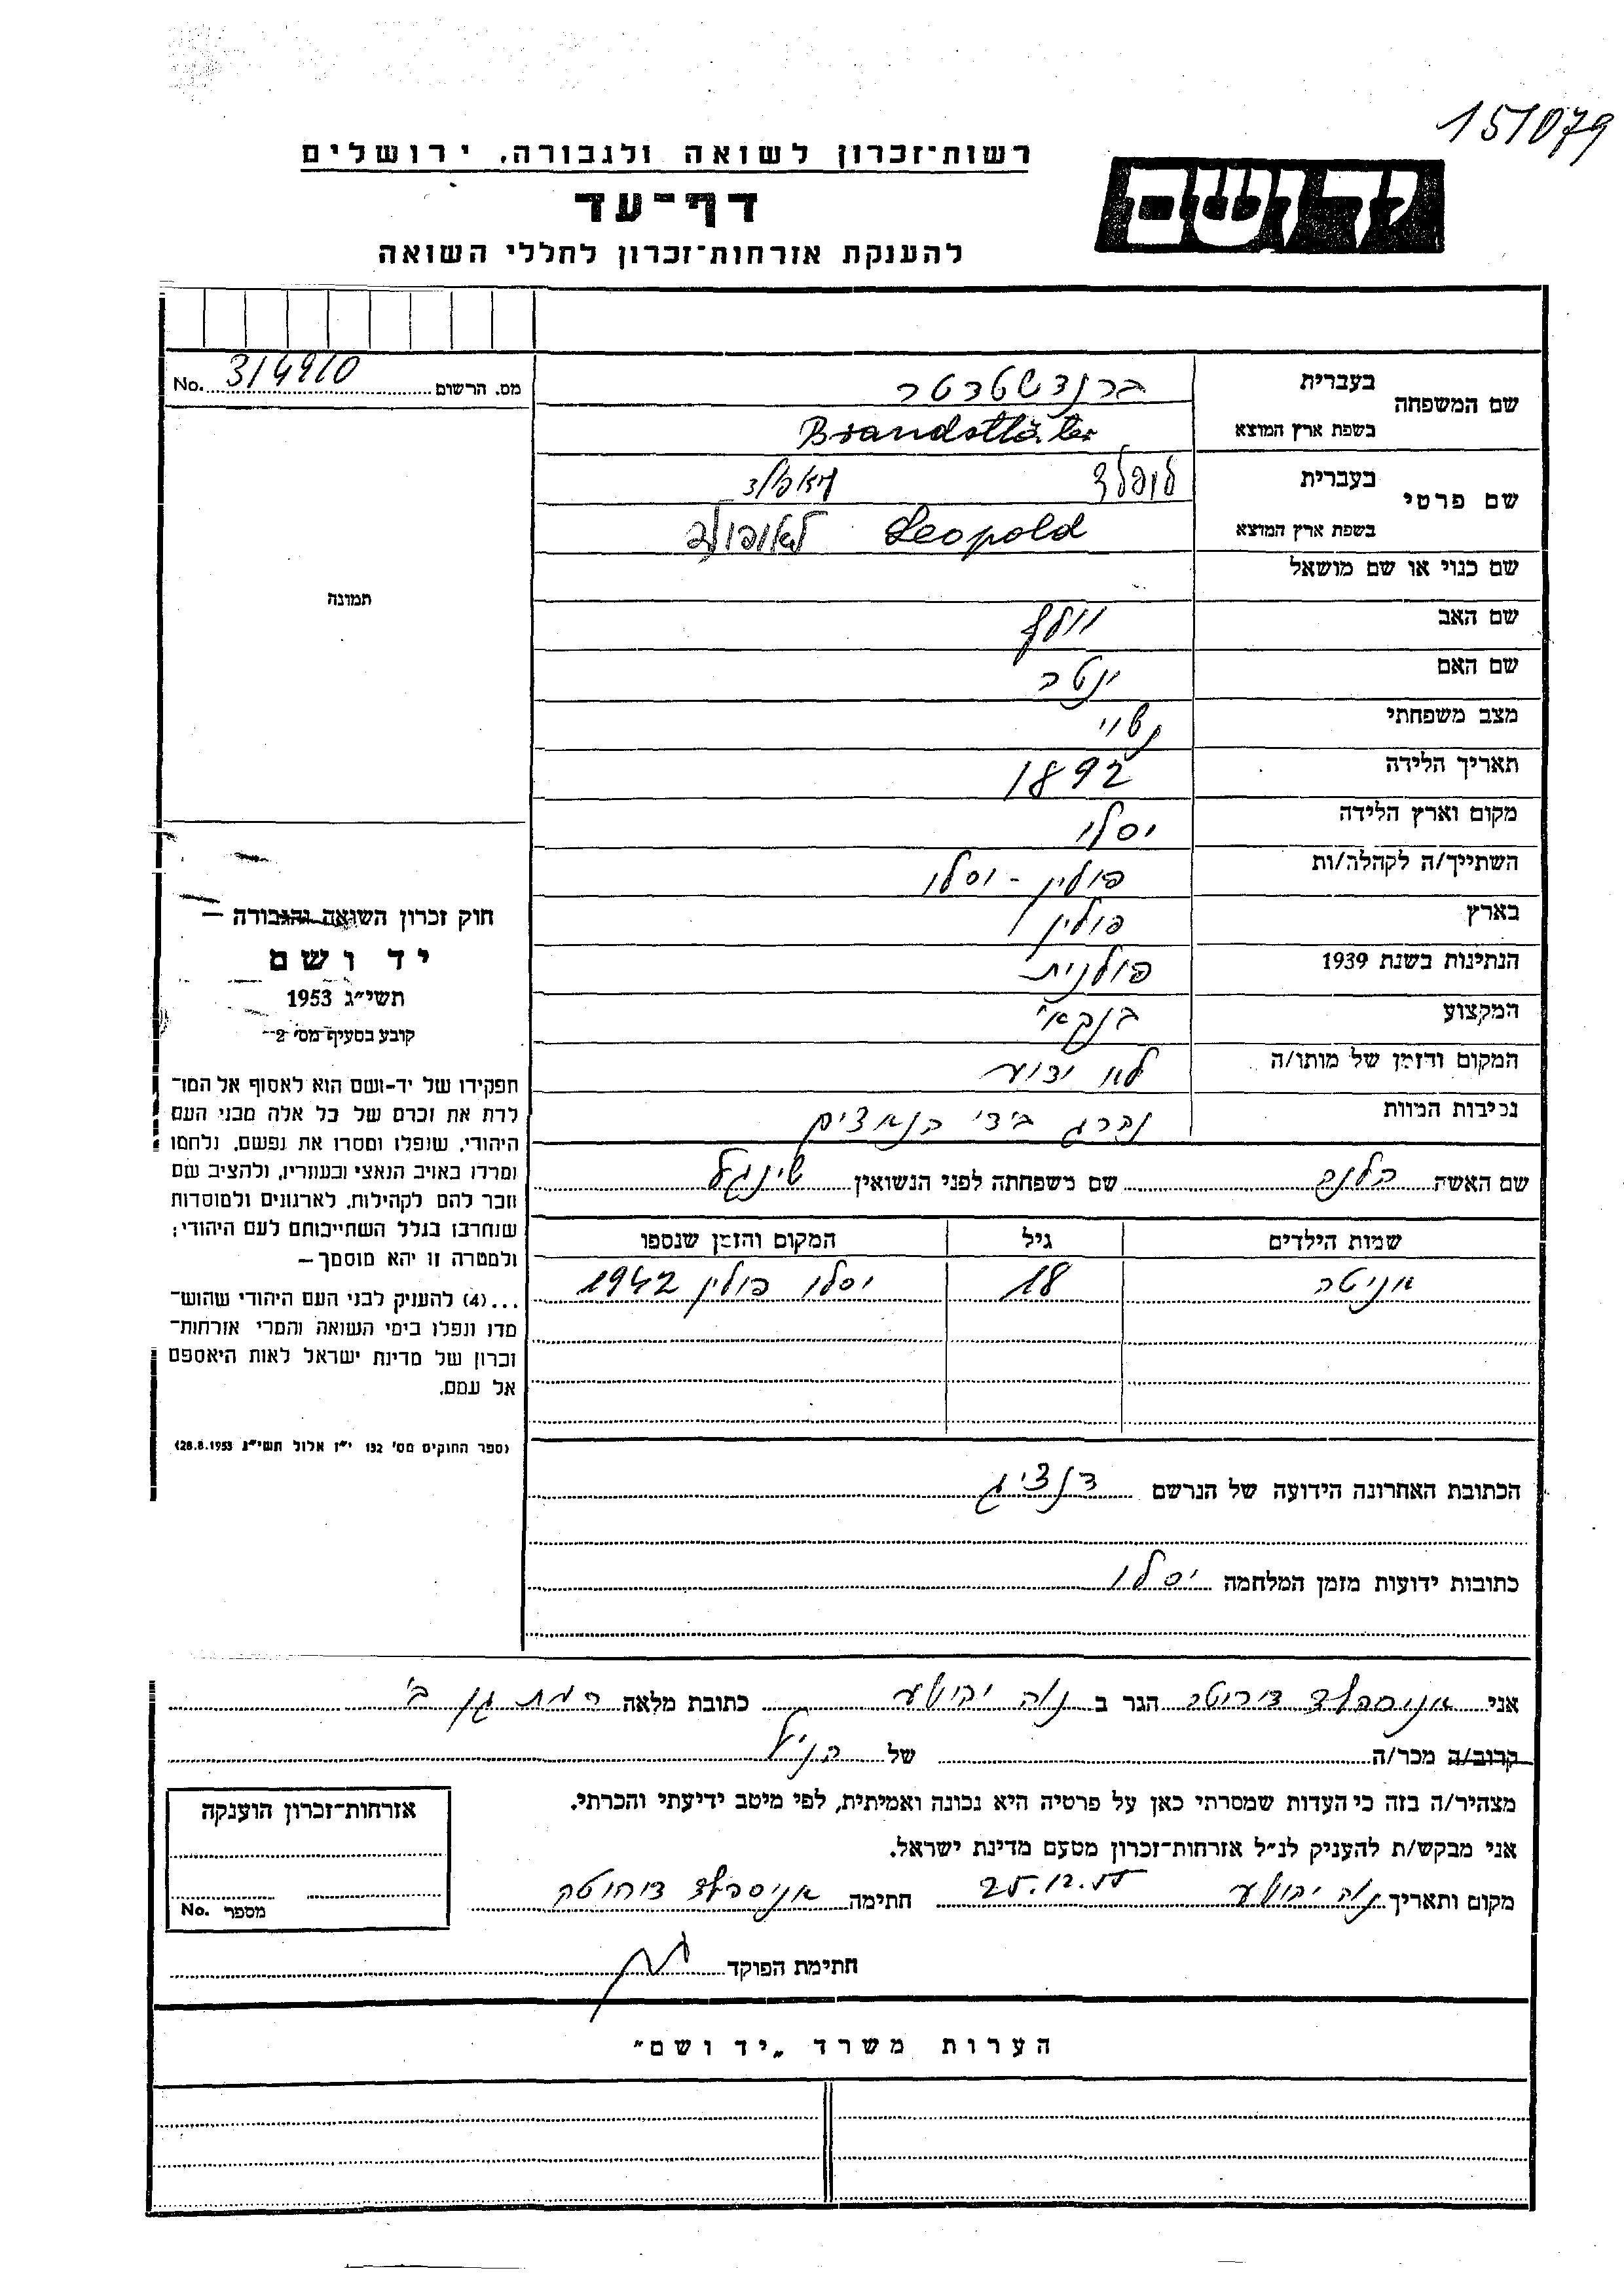 151079
רשות־זכרון לשואה ולגבורה, ירושלים
יד ושם
דף־עד
להענקת אזרחות־זכרון לחללי השואה
מס. הרשום 314910 No.
שם המשפחה בעברית ברנדשטטר
בשפת ארץ המוצא Brandstläter
שם פרטי בעברית לופלד
בשפת ארץ המוצא Leopold לאופולד
שם כנוי או שם מושאל
תמונה
שם האב וולף
שם האם יטב
מצב משפחתי נשוי
תאריך הלידה 1892
מקום וארץ הלידה יסלו
השתייך/ה לקהלה/ות פולין - יסלו
בארץ פולין
הנתינות בשנת 1939 פולנית
המקצוע בנקאי
המקום והזמן של מותו/ה לא ידוע
נסיבות המוות נהרג בידי הנאצים
שם האשה הלנה שם משפחתה לפני הנשואין שינגל
שמות הילדים גיל המקום והזמן שנספו
אניטה 18 יסלו פולין 1942
חוק זכרון השואה והגבורה —
יד ושם
תשי״ג 1953
קובע בסעיף מס׳ 2
תפקידו של יד-ושם הוא לאסוף אל המו־
לדת את זכרם של כל אלה מבני העם
היהודי, שנפלו ומסרו את נפשם, נלחמו
ומרדו באויב הנאצי ובעוזריו, ולהציב שם
וזכר להם לקהילות, לארגונים ולמוסדות
שנחרבו בגלל השתייכותם לעם היהודי;
ולמטרה זו יהא מוסמך —
...(4) להעניק לבני העם היהודי שהוש־
מדו ונפלו בימי השואה והמרי אזרחות־
זכרון של מדינת ישראל לאות היאספם
אל עמם.
(ספר החוקים מס׳ 132 י״ז אלול תשי״ג 28.8.1953)
הכתובת האחרונה הידועה של הנרשם דנציג
כתובות ידועות מזמן המלחמה יסלו
אני הגר ב נוה יהושע כתובת מלאה רמת גן ב׳
קרוב/ה מכר/ה של הנ״ל
מצהיר/ה בזה כי העדות שמסרתי כאן על פרטיה היא נכונה ואמיתית, לפי מיטב ידיעתי והכרתי.
אני מבקש/ת להעניק לנ״ל אזרחות־זכרון מטעם מדינת ישראל.
מקום ותאריך נוה יהושע 25.12.55 חתימה
אזרחות־זכרון הוענקה
מספר No.
חתימת הפוקד
הערות משרד „יד ושם״